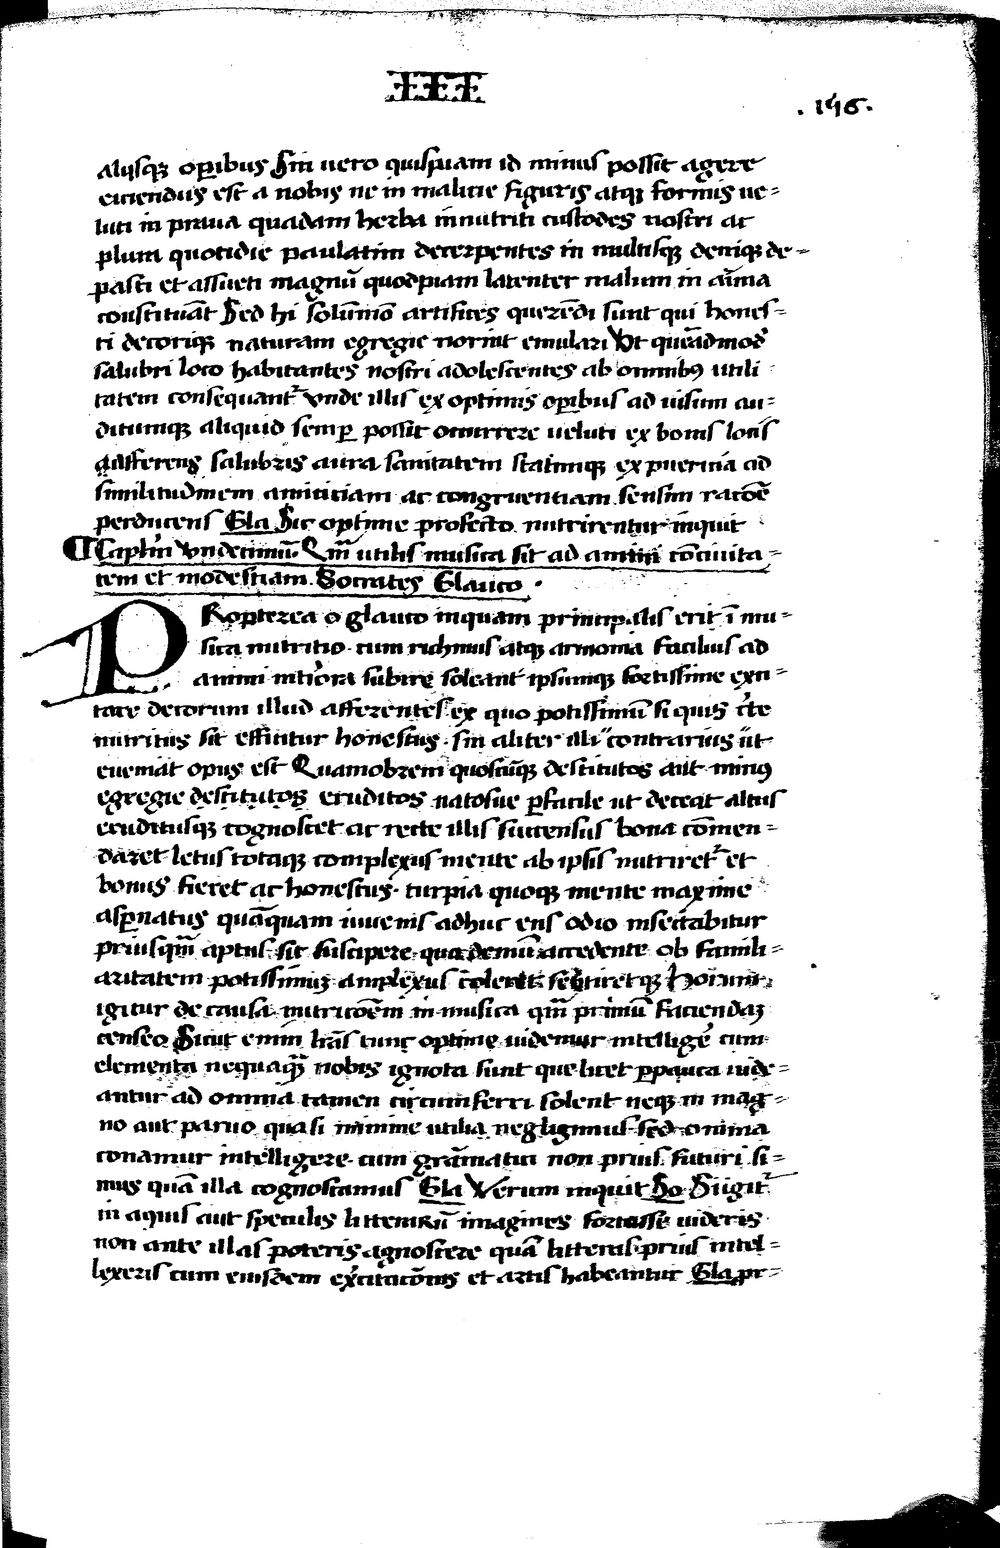 IIII
.156.
aliisqꝫ oꝑibus Sin uero quispiam id minus possit agere
eiciendus est a nobis ne in malicie figuris atqꝫ formis ue=
luti in praua quadam herba innutriti custodes nostri ac
plura quotidie paulatim decerpentes in multisqꝫ deniqꝫ de=
pasti et assueti magnū quodpiam latenter malum in aīma
constituāt Sed hi solūmō artifices querēdi sunt qui hones=
ti decoriqꝫ naturam egregie norint emulari Vt queādmod̄
salubri loco habitantes nostri adolescentes ab omnibꝰ utili
tatem consequant᷑ vnde illis ex optimis oꝑibus ad uisum au=
ditumqꝫ aliquid semꝑ possit occurrere ueluti ex bonis locis
afferens salubris aura sanitatem statimqꝫ ex puericia ad
similitudinem amicitiam ac congruentiam sensim racōe
perducens Gla Sic optime profecto nutrirentur inquit
Capl'm Vndecimū Qm̄ utilis musica sit ad animi cōcinita=
tem et modestiam. Socrates Glauco.
PRopterea o glauco inquam principalis erit ī mu=
sica nutritio cum richmus atqꝫ armonia facilius ad
animi int'iora subire soleant ipsumqꝫ fortissime exci=
tare decorum illud afferentes ex quo potissimū si quis c'te
nutritus sit efficitur honestus. sin aliter illi contrarius ut
eueniat opus est Quamobrem quoscūqꝫ destitutos aut minꝰ
egregie destitutos eruditos natosue ꝑfacile ut deceat altus
eruditusqꝫ cognoscet ac recte illis succensus bona cōmen=
daret letus totaqꝫ complexus mente ab ipsis nutriret᷑ et
bonus fieret ac honestus. turpia quoqꝫ mente maxime
asꝑnatus quāquam iuuenis adhuc ens odio insectabitur
priusqm̄ aptus sit suscipere qua demū accedente ob famili=
aritatem potissimus amplexus coleret sentiretqꝫ Horum
igitur de causa nutricōem in musica qm̄ primū faciendaꝫ
censeo Sicut enim lr̄as tunc optime uidemur intellige' cum
elementa nequaqm̄ nobis ignota sunt que licet ꝑpauca uide=
antur ad omnia tamen circumferri solent neqꝫ in mag=
no aut paruo quasi minime utilia negligimus sed omnia
conamur intelligere cum grāmatici non prius futuri si=
mus quā illa cognoscamus Gla Verum inquit So Si igit᷑
in aquis aut speculis litterarū imagines fortasse uideris
non ante illas poteris agnoscere quā litteras prius intel=
lexeris cum eiusdem exc'itacōnis et artis habeantur Gla pr=